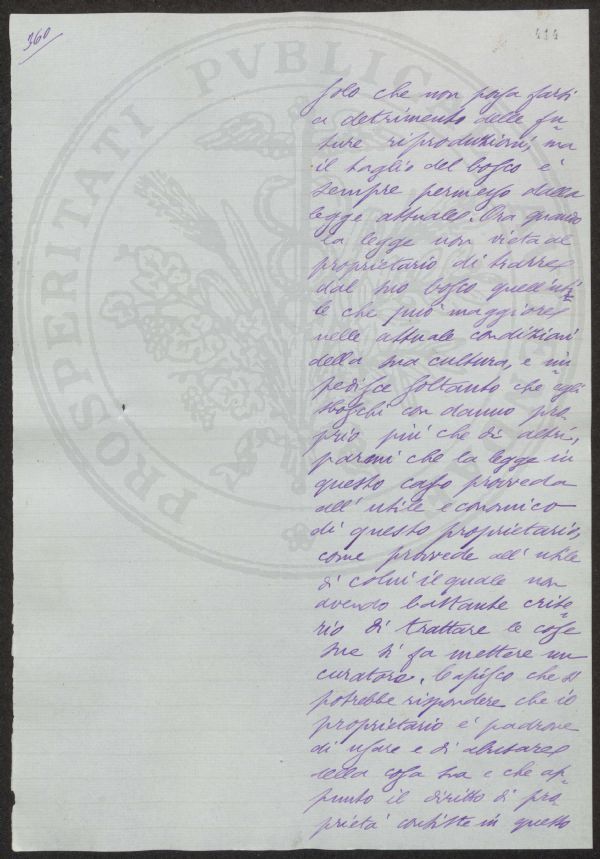 360
414
solo che non possa farsi
a detrimento delle fu-
ture riproduzioni, ma
il taglio del bosco è
sempre permesso dalla
legge attuale. Ora quando
la legge non vieta al
proprietario di trarre
dal suo bosco quell'uti-
le che può maggiore
nelle attuale condizioni
della sua cultura, e im-
pedisce soltanto che egli
sboschi con danno pro-
prio più che di altri,
parmi che la legge in
questo caso provveda
all'utile economico
di questo proprietario,
come provvede all'utile
di colui il quale non
avendo bastante crite-
rio di trattare le cose
sue si fa mettere un
curatore. Capisco che si
potrebbe rispondere che il
proprietario è padrone
di usare e di abusare
della cosa sua e che ap-
punto il diritto di pro-
prietà consiste in questo
PROSPERITATI PVBLICAE